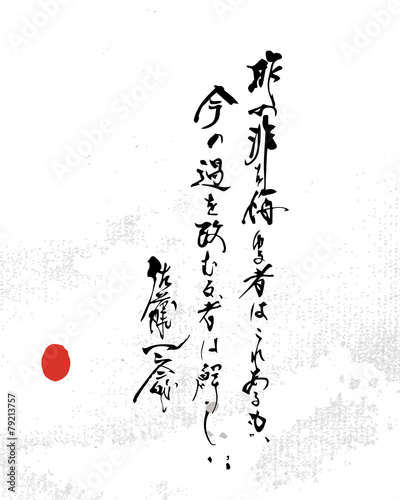 昨の非を悔ゆる者はこれあるが、
今の過を改むる者は鮮し
佐藤一斎
Adobe Stock | #79213757